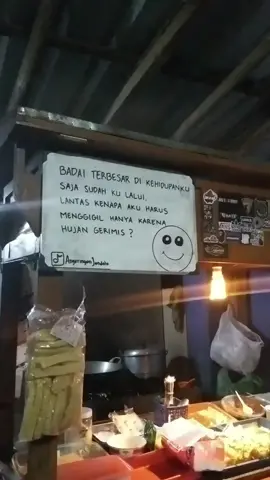 BADAI TERBESAR DI KEHIDUPANKU
SAJA SUDAH KU LALUI.
LANTAS KENAPA AKU HARUS
MENGGIGIL HANYA KARENA
HUJAN GERIMIS ?